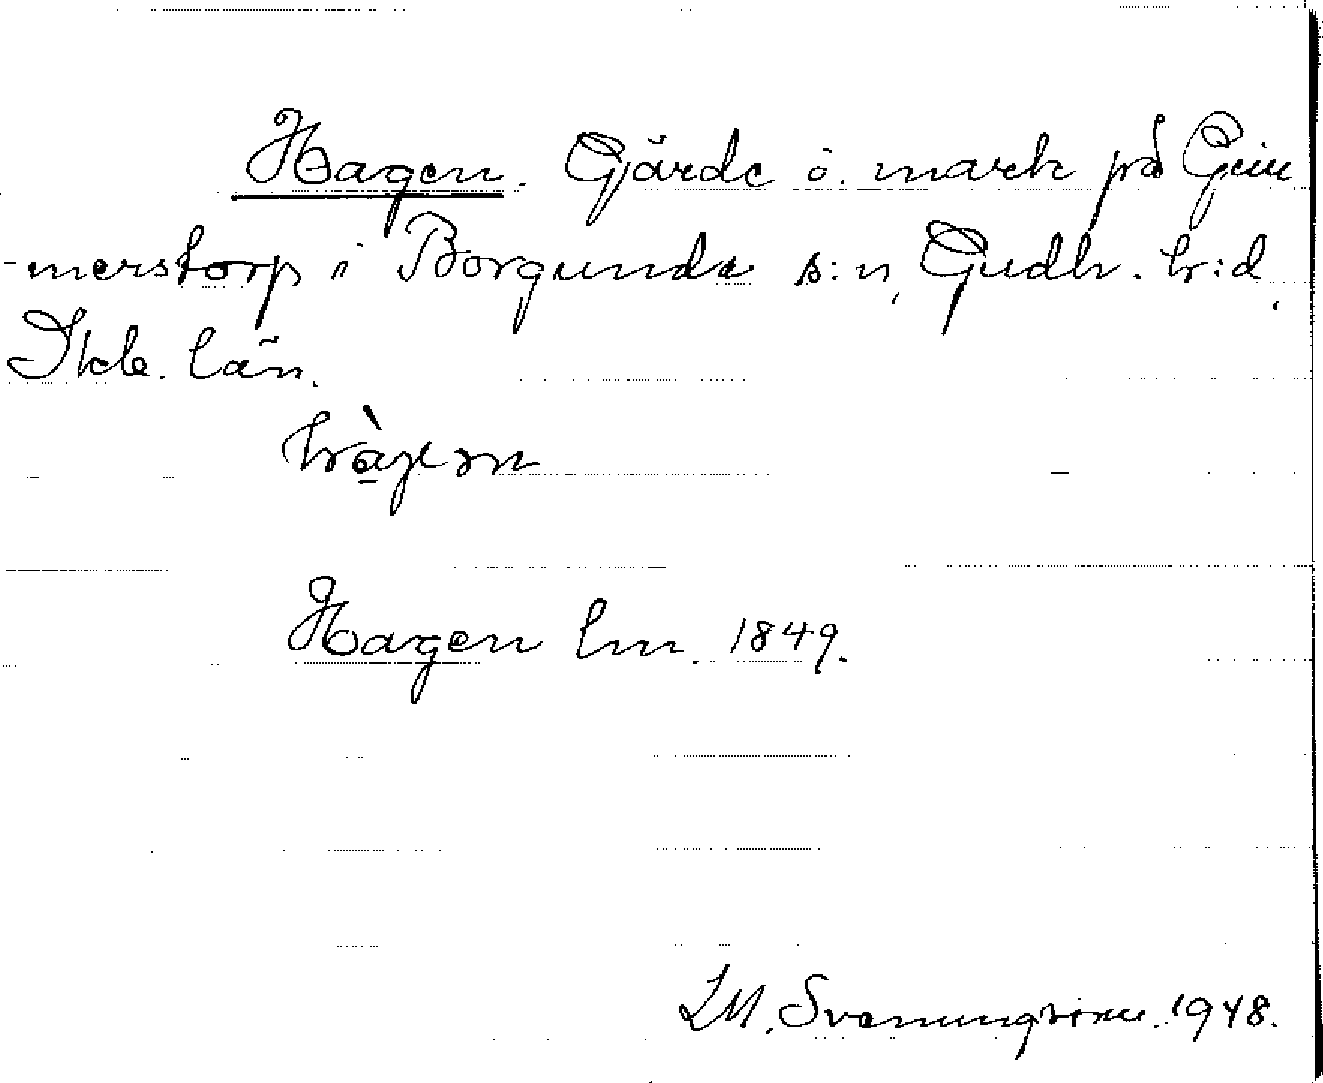 Hagen. Gärde o. mark på Gim
-merstorp i Borgunda s:n, Gudh. h:d,
Skb. län.
hàgen
Hagen lm. 1849.
Svenungsson. 1948.